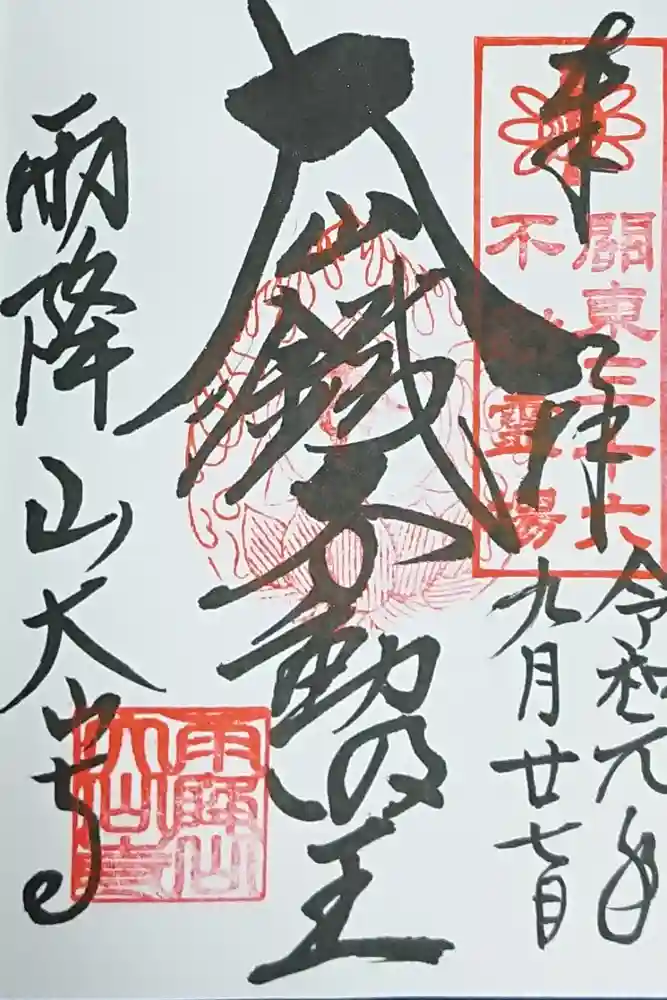 奉拝
關東三十六
不動靈場
令和元年
九月廿七日
大山鐵不動明王
雨降山大山寺
雨降山
大山寺